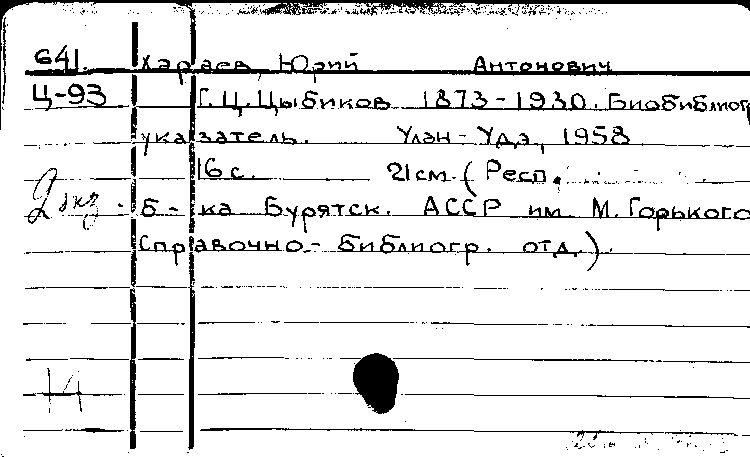 641. Хараев, Юрий Антонович
Ц-93 Г.Ц.Цыбиков 1873-1930. Биобиблиогр
указатель. Улан-Удэ, 1958
16 с. 21 см. (Респ.
2 экз. б-ка Бурятск. АССР им. М. Горького
Справочно-библиогр. отд.).
14